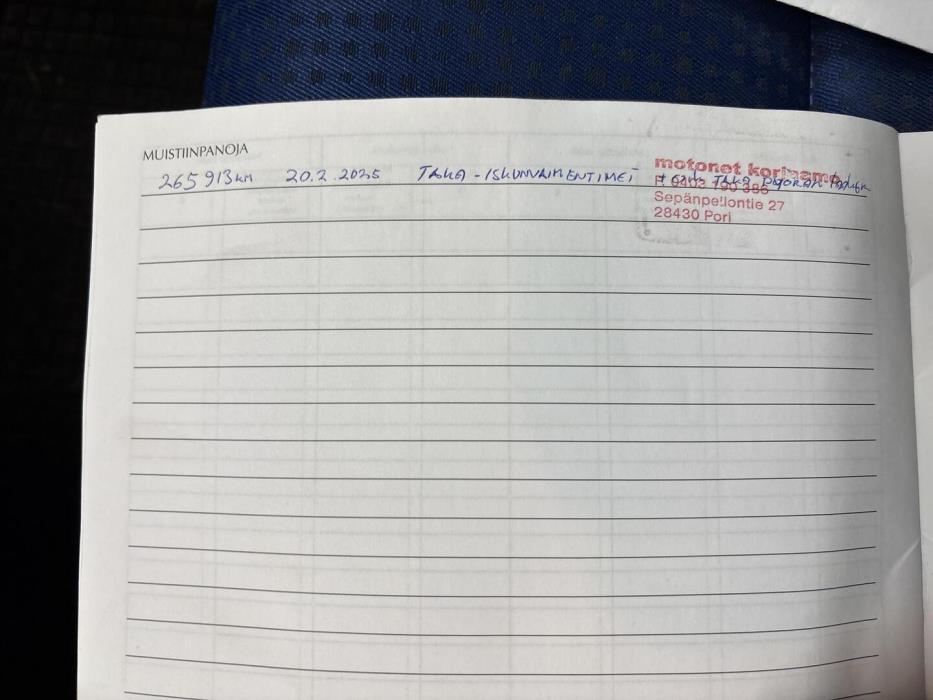 MUISTIINPANOJA
265 913 km 20.2.2025 TAKA-ISKUNVAIMENTIMET + TAKA PYÖRÄN
motonet korjaamo
Sepänpellontie 27
28430 Pori